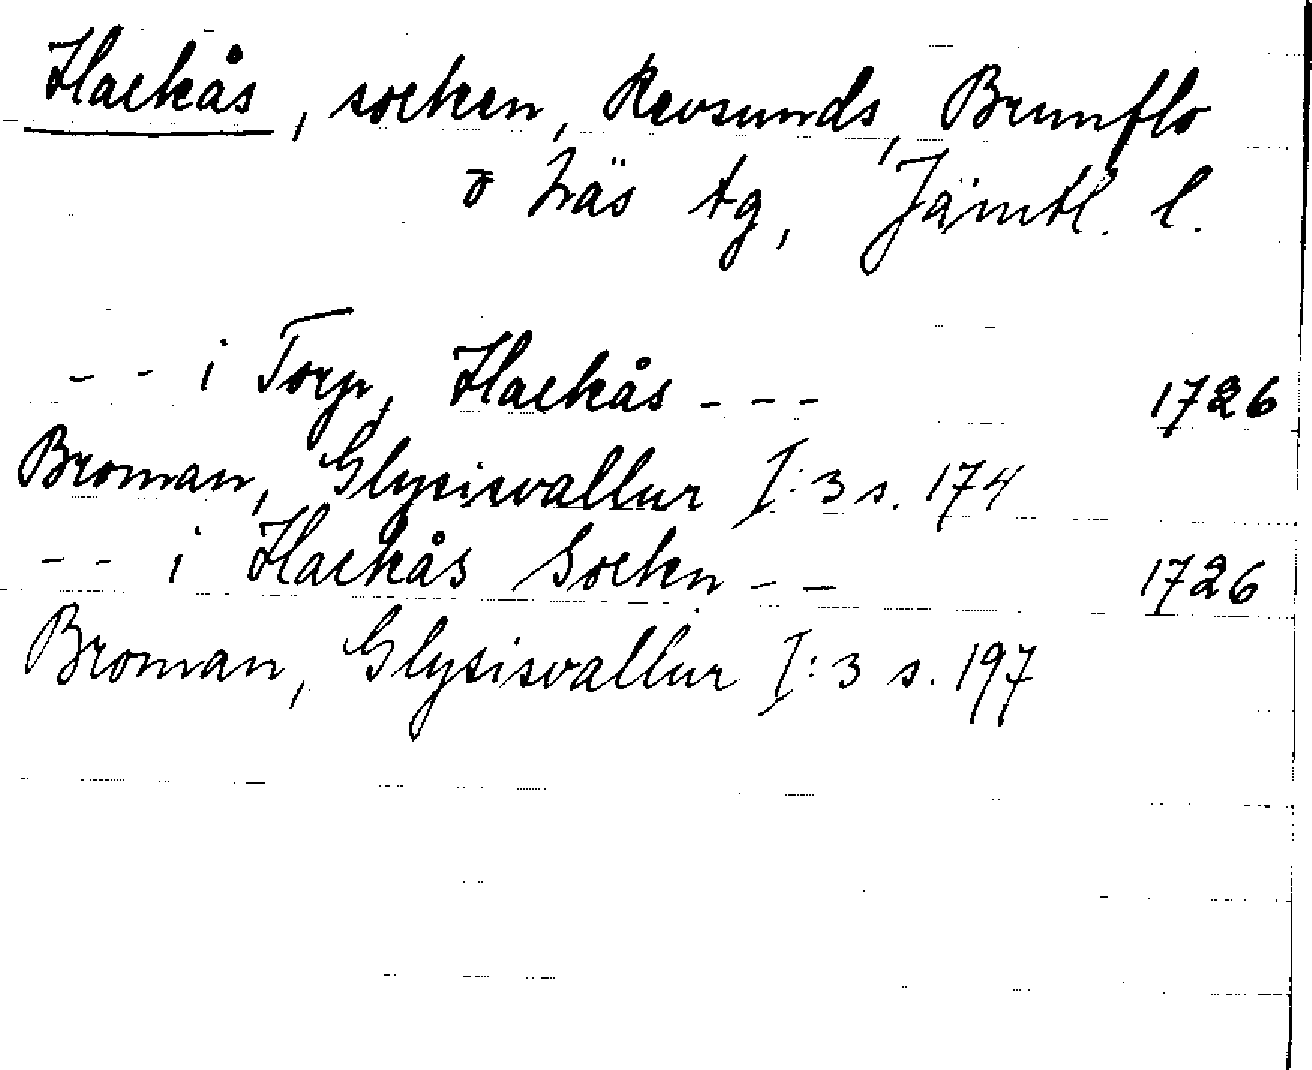 Hackås, socken, Revsunds, Brunflo
o Näs tg, Jämtl. l.
-- i Torp, Hackås --- 1726
Broman, Glysisvallur I:3 s. 174
-- i Hackås Sockn -- 1726
Broman, Glysisvallur I:3 s. 197